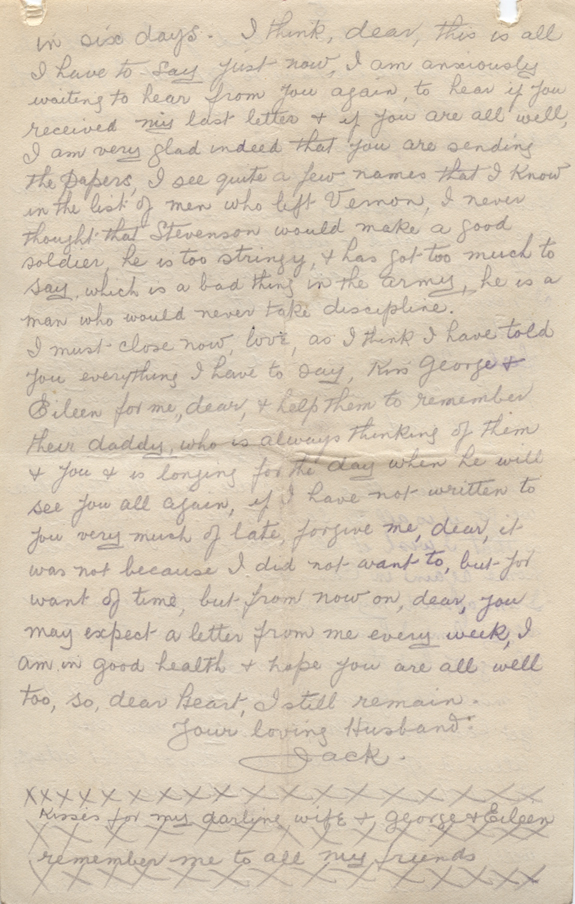 in six days. I think, dear, this is all
I have to say just now, I am anxiously
waiting to hear from you again, to hear if you
received my last letter & if you are all well,
I am very glad indeed that you are sending
the papers, I see quite a few names that I know
in the list of men who left Vernon, I never
thought that Stevenson would make a good
soldier, he is too stringy, & has got too much to
say which is a bad thing in the army, he is a
man who would never take discipline.
I must close now, love, as I think I have told
you everything I have to say, Kiss George &
Eileen for me, dear, & help them to remember
their daddy, who is always thinking of them
& you & is longing for the day when he will
see you all again, if I have not written to
you very much of late, forgive me, dear, it
was not because I did not want to, but for
want of time, but from now on, dear, you
may expect a letter from me every week, I
am in good health & hope you are all well
too, so, dear Heart, I still remain.
Your loving Husband.
Jack.
XXXXXXXXXXXXXXXX
Kisses for my darling wife &, George & Eileen
XXXXXXXXXXXXXX
remember me to all my friends
XXXXXXXXXXXXXXX